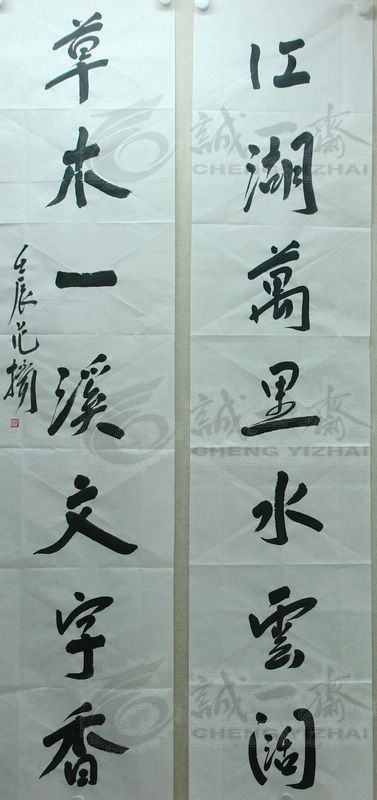 江湖萬里水雲闊
草木一溪文字香
壬辰范擴
誠一齋
CHENG YIZHAI
誠一齋
CHENG YIZHAI
誠一齋